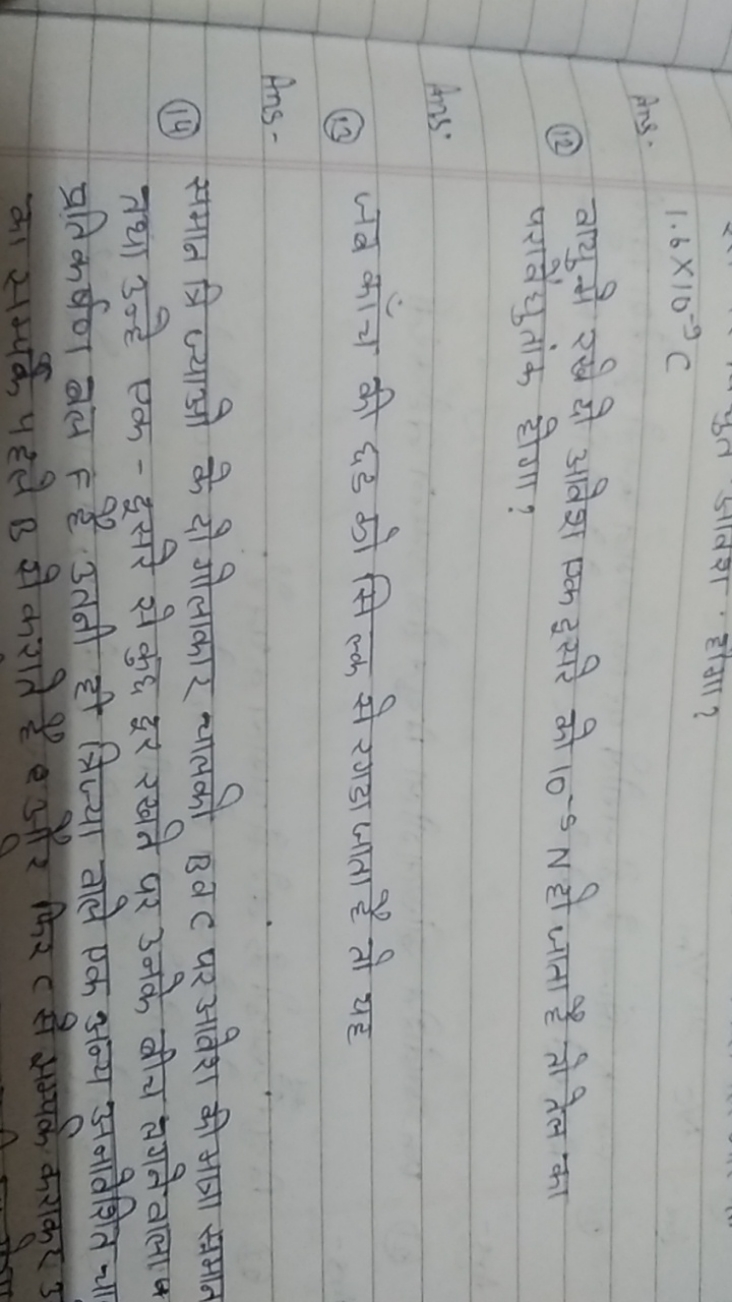 विद्युत आवेश होगा?
Ans.
1.6×10⁻⁹ C
(12) वायु मे रखे दो आवेश एक दूसरे को 10⁻⁵ N हो जाता है तो तेल का
परावैधुतांक होगा?
Ans.
(13) जब काँच की छड को सिल्क से रगडा जाता है तो यह
Ans -
(14) समान त्रिज्याओ के दो गोलाकार चालको B व C पर आवेश की मात्रा समान
तथा उन्हे एक - दूसरे से कुछ दूर रखने पर उनके बीच लगने वाला
प्रतिकर्षण बल F है. उतनी ही त्रिज्या वाले एक अन्य अनावेशित
का सम्पर्क पहले B से कराते है और फिर C से सम्पर्क कराकर